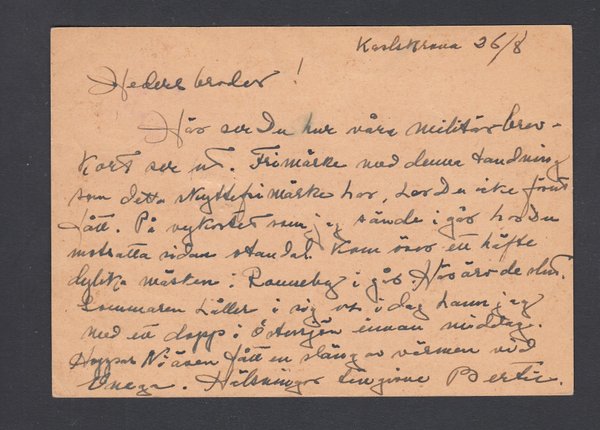 Karlskrona 26/8
Hedersbroder!
Här ser Du hur våra militärbrev-
kort ser ut. Frimärke med denna tandning
som detta skyttefrimärke har, har Du icke förut
fått. På vykortet som jag sände i går har Du
motsatta sidan otandad. Kom över ett häfte
dylika märken i Ronneby i går. Här äro de slut.
Sommaren håller i sig och i dag hann jag
med ett dopp i Östersjön innan middag.
Hoppas Ni även fått en släng av värmen vid
Hälsningar Bertil.